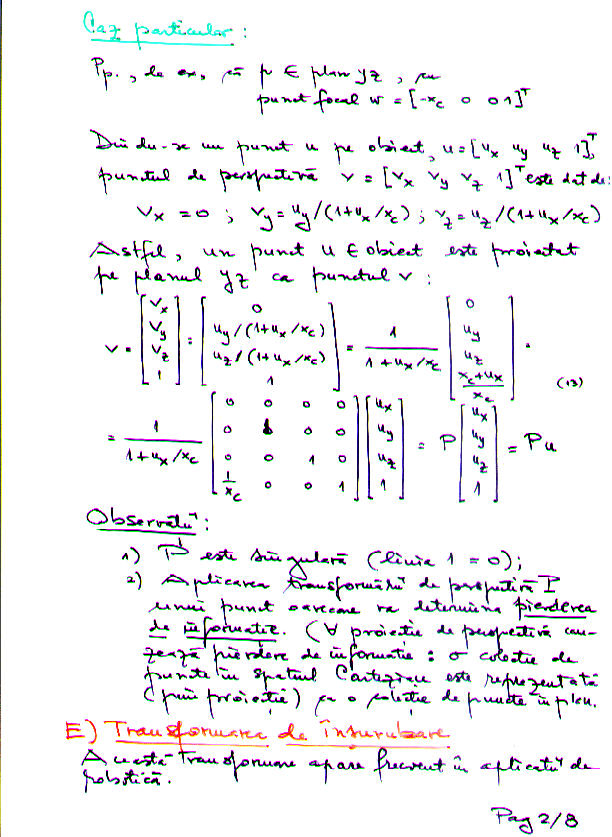 Caz particular :
Pp., de ex, că p ∈ plan yz , cu
punct focal w = [-x_c 0 0 1]^T
Dându-se un punct u pe obiect, u = [u_x u_y u_z 1]^T,
punctul de perspectivă v = [v_x v_y v_z 1]^T este dat de:
v_x = 0 ; v_y = u_y/(1+u_x/x_c) ; v_z = u_z/(1+u_x/x_c)
Astfel, un punct u ∈ obiect este proiectat
pe planul yz ca punctul v :
v = [v_x v_y v_z 1] = [0 u_y/(1+u_x/x_c) u_z/(1+u_x/x_c) 1] = 1/(1+u_x/x_c) [0 u_y u_z (x_c+u_x)/x_c] =
(13)
= 1/(1+u_x/x_c) [0 0 0 0; 0 1 0 0; 0 0 1 0; 1/x_c 0 0 1] [u_x u_y u_z 1] = P [u_x u_y u_z 1] = Pu
Observații :
1) P este singulară (linia 1 = 0);
2) Aplicarea transformării de perspectivă P
unui punct oarecare va determina pierderea
de informație. (∀ proiecție de perspectivă cau-
zează pierdere de informație : o colecție de
puncte în spațiul Cartezian este reprezentată
(prin proiecție) ca o colecție de puncte în plan.
E) Transformarea de înșurubare
Această transformare apare frecvent în aplicații de
robotică.
Pag 2/8